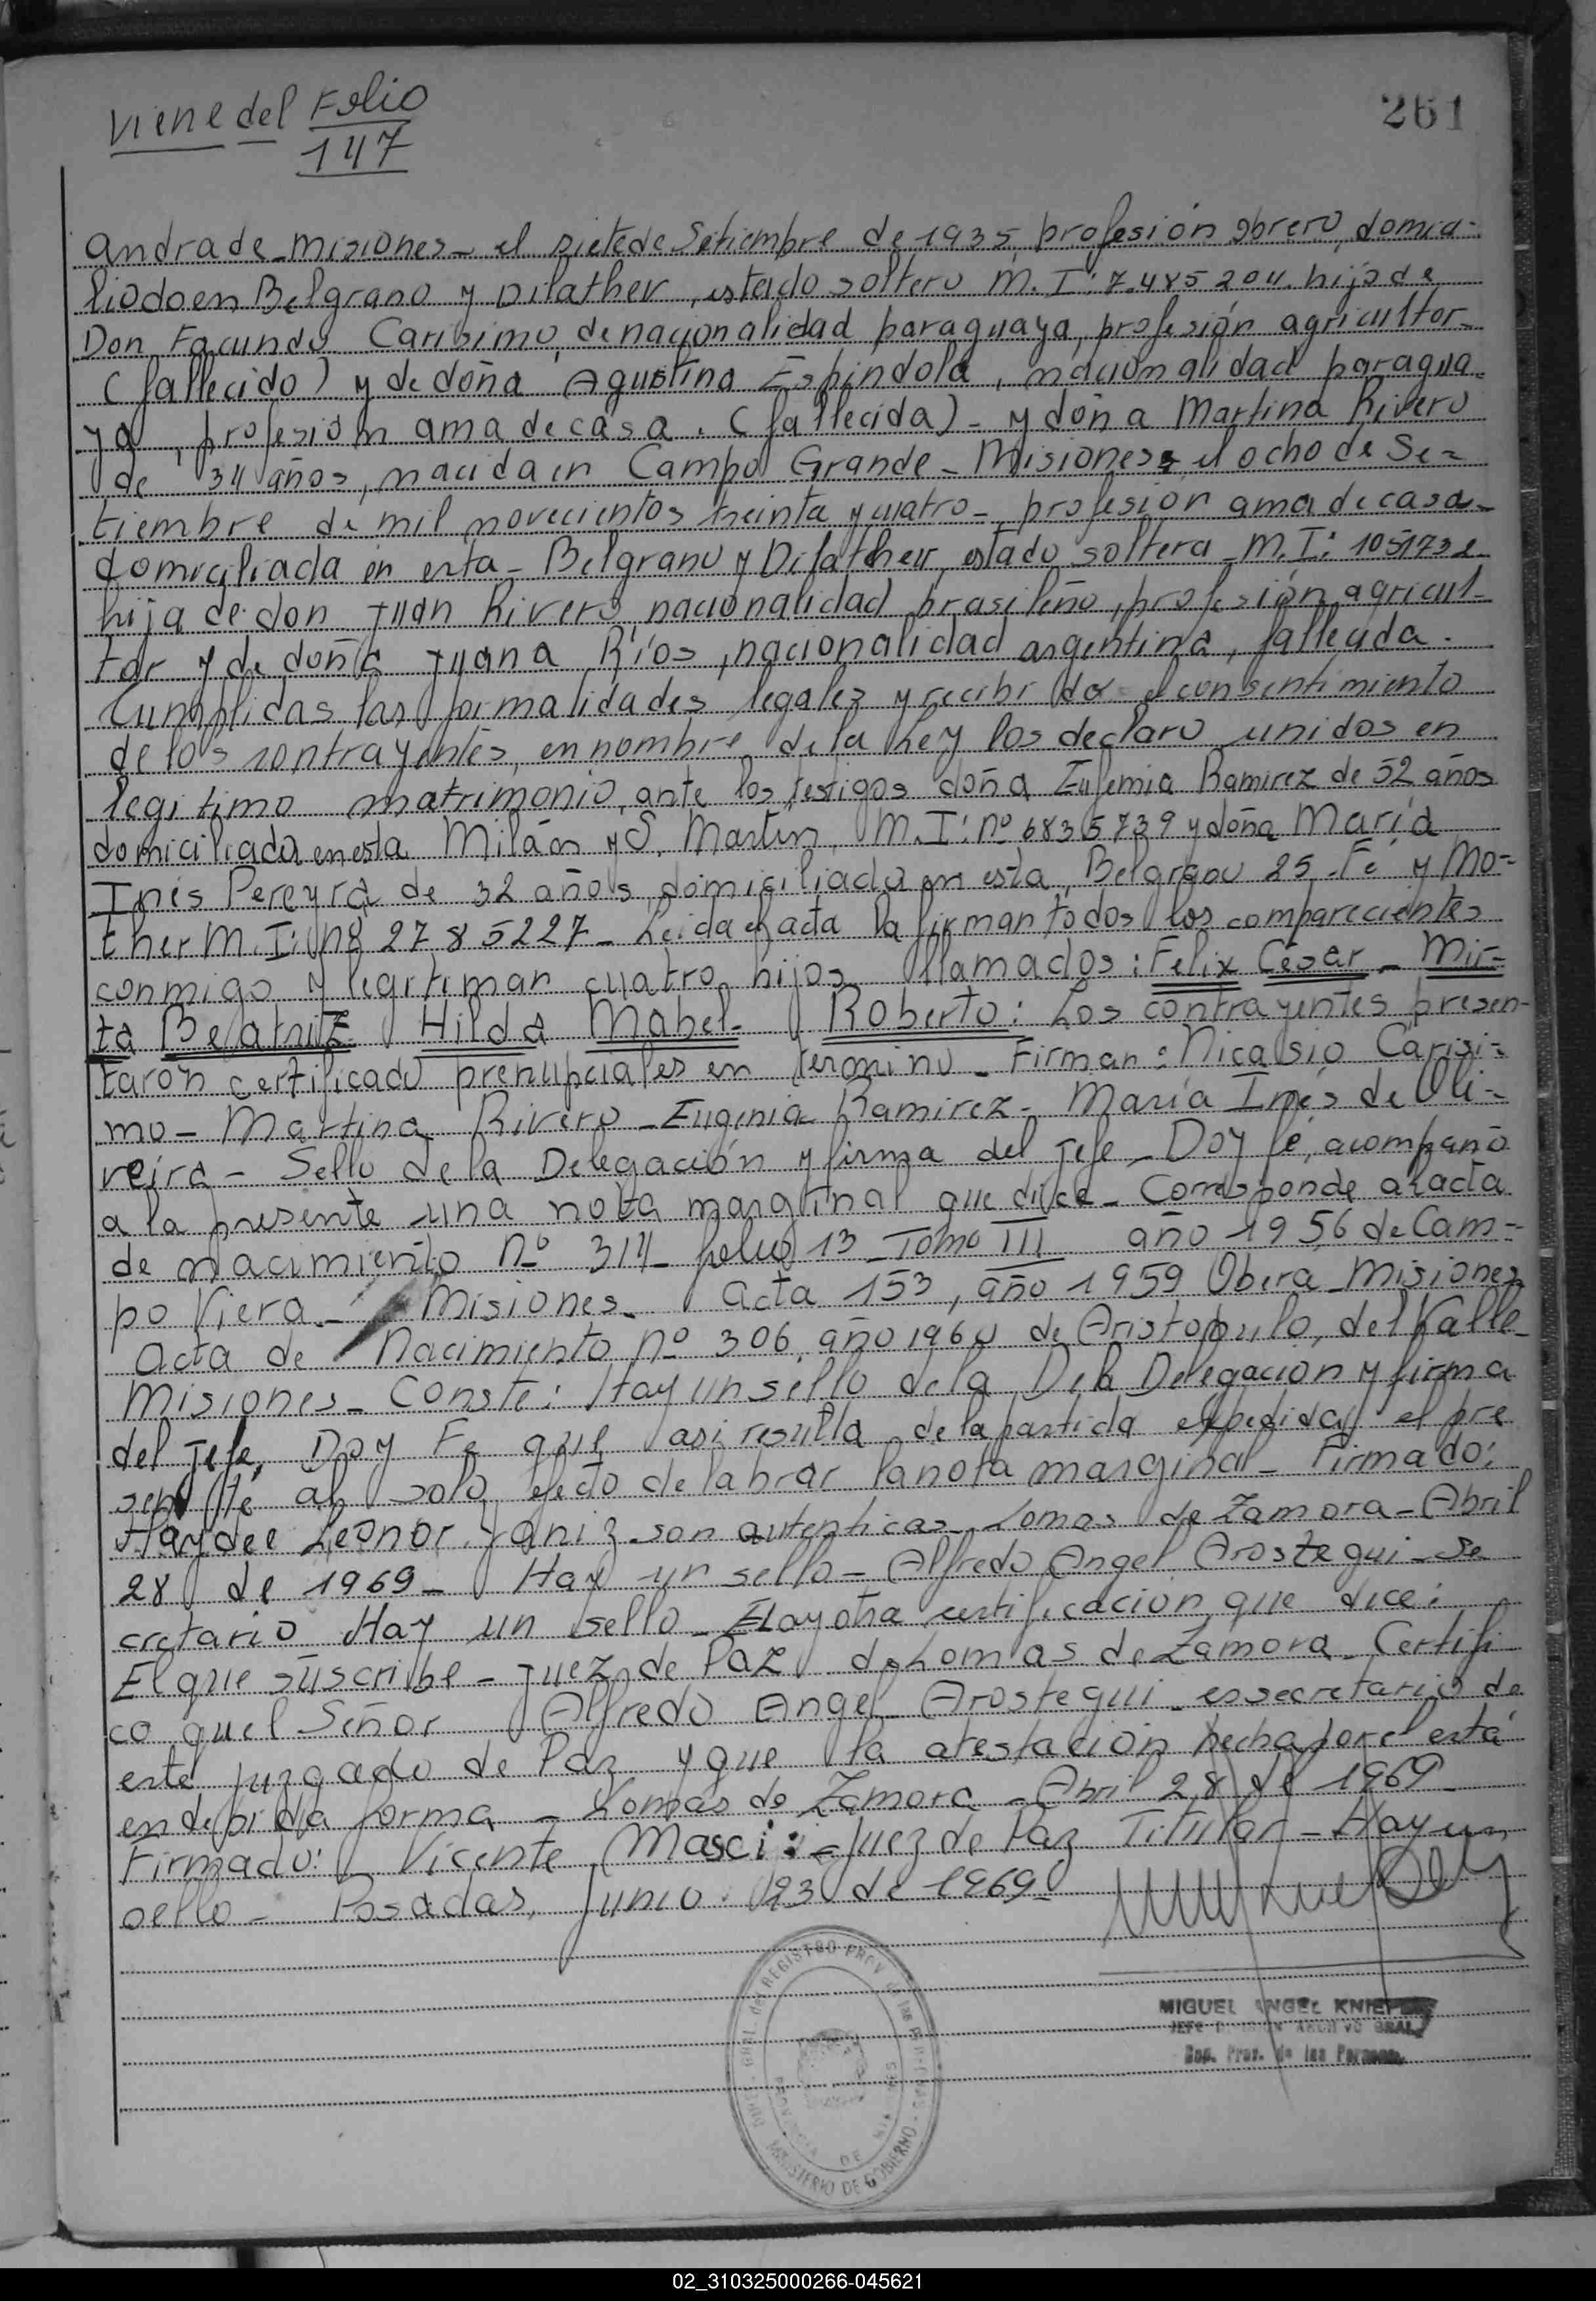 Viene del Folio
147
261
andrade - misiones - el siete de Setiembre de 1935, profesión obrero, domici-
liado en Belgrano y Dilather, estado soltero M. I: 7.485204. hijo de
Don Facundo Carisimo, de nacionalidad paraguaya, profesión agricultor -
(fallecido) y de doña Agustina Espindola, nacionalidad paragua-
ya, profesión ama de casa. (fallecida) - y doña Martina Rivero
de 34 años, nacida en Campo Grande - Misiones el ocho de Se-
tiembre de mil novecientos treinta y cuatro - profesión ama de casa -
domiciliada en esta - Belgrano y Dilather, estado soltera - M. I:
hija de don Juan Rivero, nacionalidad brasileño, profesión agricul-
tor y de doña Juana Ríos, nacionalidad argentina, fallecida.
Cumplidas las formalidades legales y recibido el consentimiento
de los contrayentes, en nombre de la Ley los declaro unidos en
legitimo matrimonio, ante los testigos doña Eufemia Ramirez de 52 años
domiciliada en esta Milán y S. Martín, M. I: nº 6835739 y doña María
Inés Pereyra de 32 años, domiciliada en esta, Belgrano 25 Fé y Mo-
ther M. I: nº 2785227 - Leida el acta la firman todos los comparecientes
conmigo y legitiman cuatro hijos llamados: Felix César - Mir-
ta Beatriz Hilda Mabel - Roberto: Los contrayentes presen-
taron certificado prenupciales en termino - Firman: Nicasio Carisi-
mo - Martina Rivero - Eugenia Ramirez - María Inés de Oli-
veira - Sello de la Delegación y firma del Jefe - Doy fé, acompaño
a la presente una nota marginal que dice - Corresponde al acta
de nacimiento nº 314 folio 13 Tomo III año 1956 de Cam-
po Viera - Misiones - Acta 153, año 1959 Obera - Misiones
Acta de Nacimiento nº 306, año 1960 de Aristobulo, del Valle -
Misiones - Conste: Hay un sello de la Dela Delegación y firma
del Jefe, Doy Fe que asi resulta de la partida expedida y el pre
sente al solo efecto de labrar la nota marginal - Firmado:
Haydee Leonor Yaniz son autenticas - Lomas de Zamora - Abril
28 de 1969 - Hay un sello - Alfredo Angel Arostegui - Se
cretario Hay un sello - Hay otra certificación que dice:
El que suscribe - Juez de Paz de Lomas de Zamora - Certifi
co quel Señor Alfredo Angel Arostegui - es secretario de
este juzgado de Paz y que la atestación hecha por el está
en debida forma - Lomas de Zamora - Abril 28 de 1969 -
Firmado: Vicente Masci: - Juez de Paz Titular - Hay un
sello - Posadas, Junio 23 de 1969 -
MIGUEL ANGEL KNIEPE
JEFE DIVISION ARCHIVO GRAL.
Rep. Prov. de las Personas
REGISTRO PROV. DE LAS PERSONAS
MINISTERIO DE GOBIERNO
PROVINCIA DE MISIONES
02_310325000266-045621